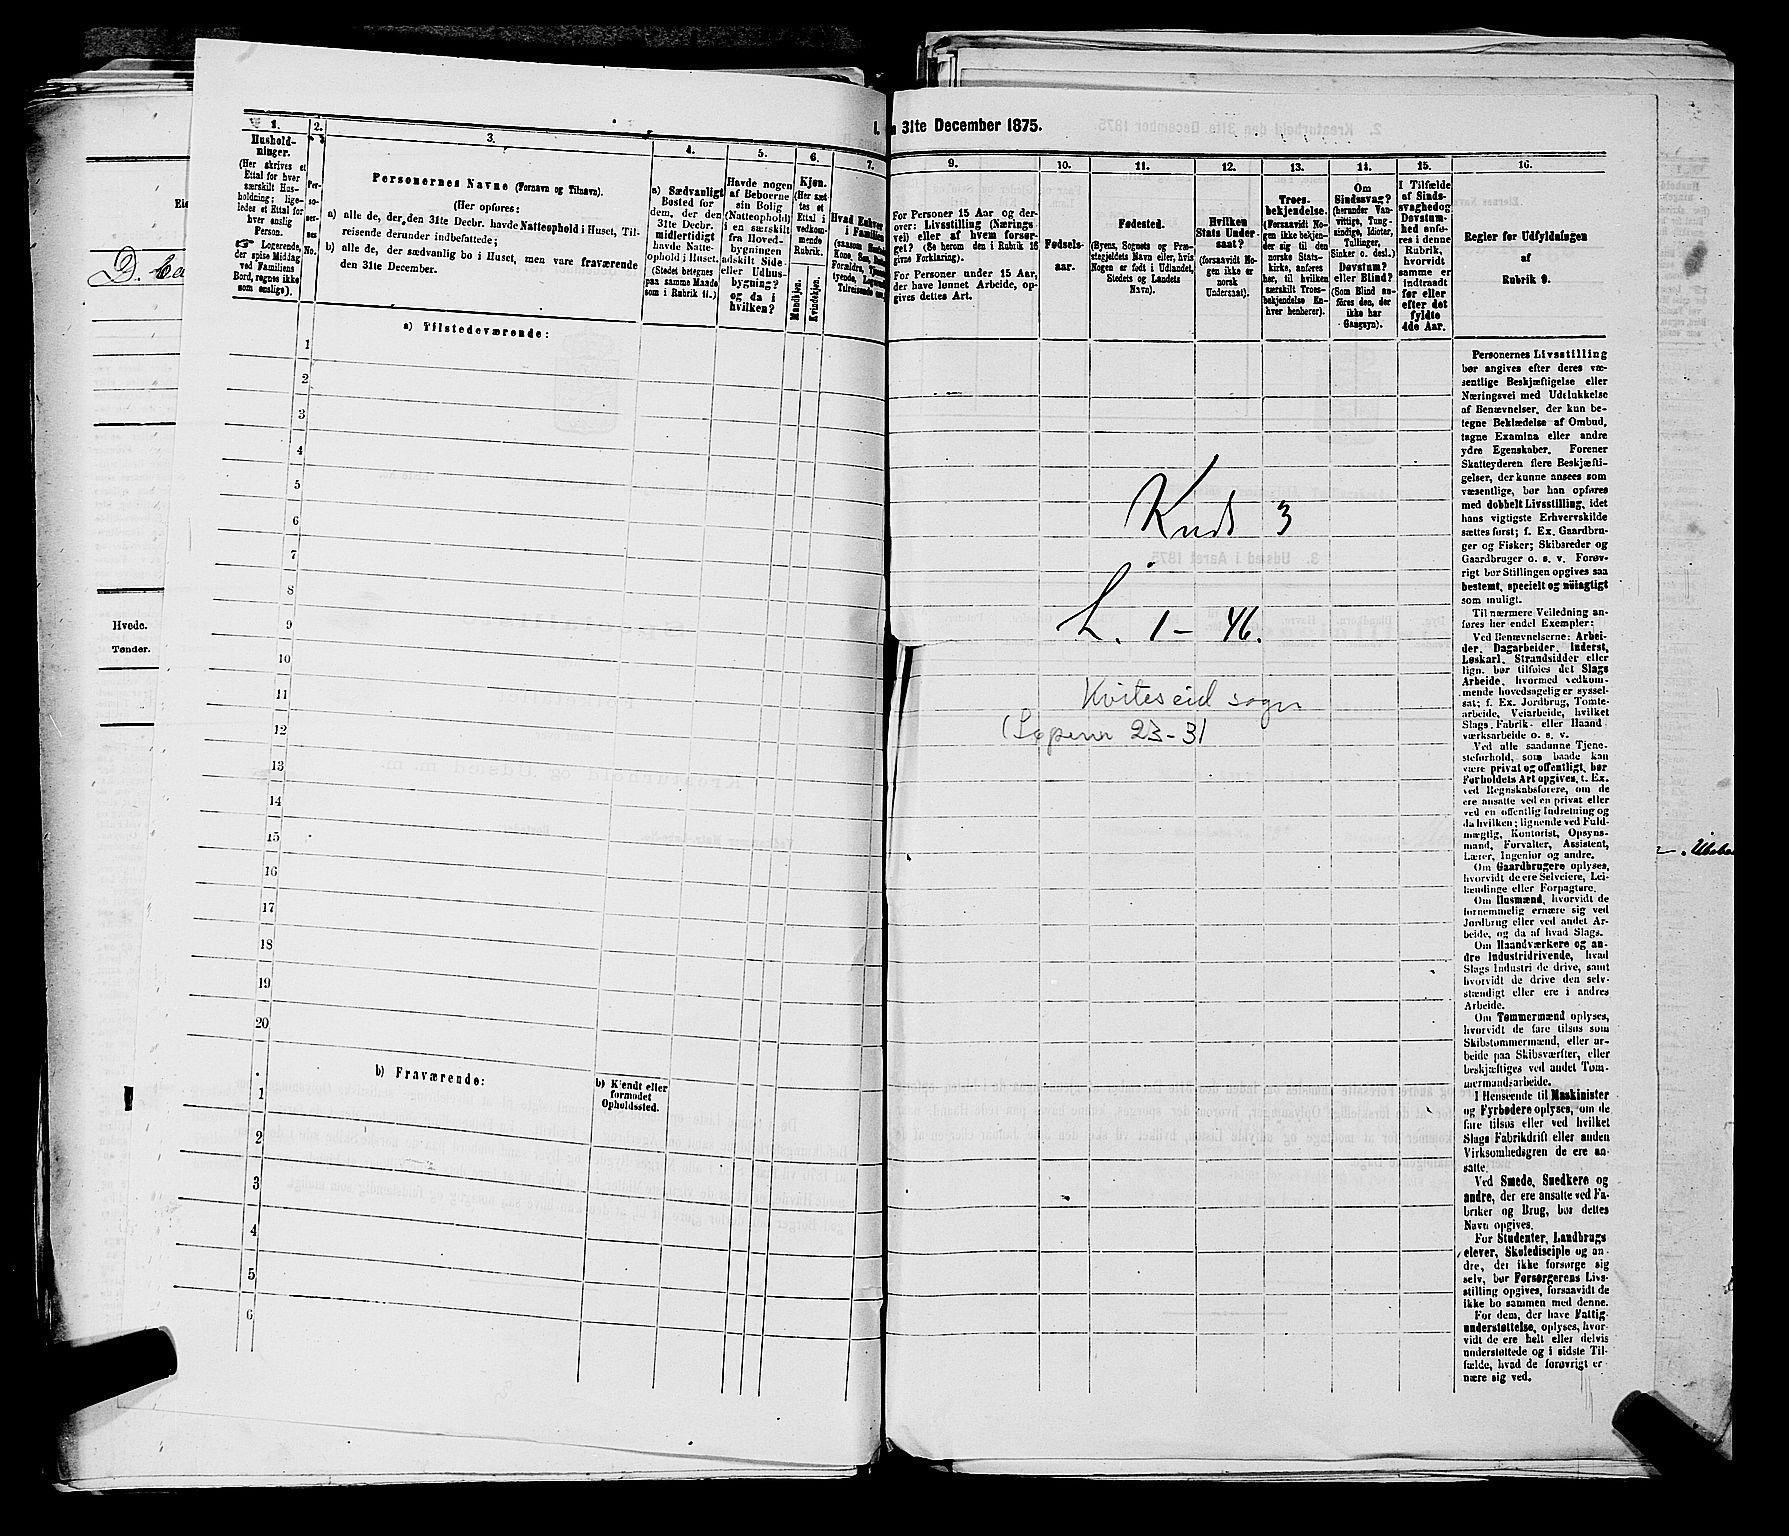 I. 31te December 1875.
1.
Hushold-
ninger.
(Her skrives et
Ettal for hver
særskilt Hus-
holdning; lige-
ledes et Ettal for
hver enslig
Person.
☞ Logerende,
der spise Middag
ved Familiens
Bord, regnes ikke
som enslige).
2.
Per-
so-
ner-
nes
No.
3.
Personernes Navne (Fornavn og Tilnavn).
(Her opføres:
a) alle de, der den 31te Decbr. havde Natteophold i Huset, Til-
reisende derunder indbefattede;
b) alle de, der sædvanlig bo i Huset, men vare fraværende
den 31te December.
4.
a) Sædvanligt
Bosted for
dem, der den
31te Decbr.
midlertidigt
havde Natte-
ophold i Huset.
(Stedet betegnes
paa samme Maade
som i Rubrik 11.)
5.
Havde nogen
af Beboerne
sin Bolig
(Natteophold)
i en særskilt
fra Hoved-
bygningen
adskilt Side-
eller Udhus-
bygning?
og da i
hvilken?
6.
Kjøn.
(Her sæt-
tes et
Ettal i
vedkom-
mende
Rubrik.
Mandkjøn.
Kvindekjøn.
7.
Hvad Enhver
i Familien
9.
For Personer 15 Aar og der-
over: Livsstilling (Nærings
vei) eller af hvem forsør-
get? (Se herom den i Rubrik 16
givne Forklaring).
For Personer under 15 Aar,
der have lønnet Arbeide, op-
gives dettes Art.
10.
Fødsels-
aar.
11.
Fødested.
(Byens, Sognets og Præ-
stegjeldets Navn eller, hvis
Nogen er født i Udlandet,
Stedets og Landets
Navn).
12.
Hvilken
Stats Under-
saat?
(forsaavidt No-
gen ikke er
norsk
Undersaat).
13.
Troes-
bekjendelse.
(Forsaavidt No-
gen ikke bekjen-
der sig til den
norske Stats-
kirke, anføres
her, til hvilken
særskilt Troes-
bekjendelse En-
hver henhører).
14.
Om
Sindssvag?
(herunder Van-
vittige, Tung-
sindige, Idioter,
Tullinger,
Sinker o. desl.)
Døvstum?
eller Blind?
(Som Blind an-
føres den, der
ikke har
Gangsyn).
15.
I Tilfælde
af Sinds-
svaghedog
Døvstum-
hed anfø-
res i denne
Rubrik,
hvorvidt
samme er
indtraadt
før eller
efter det
fyldte
4de Aar.
16.
Regler før Udfyldningen
af
Rubrik 9.
a) Tilstedeværende:
1
2
3
4
5
6
7
8
9
10
11
12
13
14
15
16
17
18
19
20
b) Fraværende:
b) Kjendt eller
formodet
Opholdssted.
1
2
3
4
5
6
Hvede.
Tønder.
Kreds 3
L. 1 – 46.
Kviteseid sogn
23-31
Personernes Livsstilling
bør angives efter deres væ-
sentlige Beskjæftigelse eller
Næringsvei med Udelukkelse
af Benævnelser, der kun be-
tegne Beklædelse af Ombud,
tagne Examina eller andre
ydre Egenskaber. Forener
Skatteyderen flere Beskjæfti-
gelser, der kunne ansees som
væsentlige, bør han opføres
med dobbelt Livsstilling, idet
hans vigtigste Erhvervskilde
sættes først; f. Ex. Gaardbru-
ger og Fisker; Skibsreder og
Gaardbruger o. s. v. Forøv-
rigt bør Stillingen opgives saa
bestemt, specielt og nøiagtigt
som muligt.
Til nærmere Veiledning an-
føres her endel Exempler:
Ved Benævnelserne: Arbei-
der, Dagarbeider, Inderst,
Løskarl, Strandsidder eller
lign. bør tilføies det Slags
Arbeide, hvormed vedkom-
mende hovedsagelig er syssel-
sat; f. Ex. Jordbrug, Tomte-
arbeide, Veiarbeide, hvilket
Slags Fabrik- eller Haand-
værksarbeide o. s. v.
Ved alle saadanne Tjene-
steforhold, som baade kan
være privat og offentligt, bør
Forholdets Art opgives, t. Ex.
ved Regnskabsførere, om de
ere ansatte ved en privat eller
ved en offentlig Indretning og
da hvilken; lignende ved Fuld-
mægtig, Kontorist, Opsyns-
mand, Forvalter, Assistent,
Lærer, Ingeniør og andre.
Om Gaardbrugere oplyses,
hvorvidt de ere Selveiere, Lei-
lændinge eller Forpagtere.
Om Husmænd, hvorvidt de
fornemmelig ernære sig ved
Jordbrug eller ved andet Ar-
beide, og da af hvad Slags.
Om Haandværkere og an-
dre Industridrivende, hvad
Slags Industri de drive, samt
hvorvidt de drive den selv-
stændigt eller ere i andres
Arbeide.
Om Tømmermænd oplyses,
hvorvidt de fare tilsøs som
Skibstømmermænd, eller ar-
beide paa Skibsværfter, eller
beskjæftiges ved andet Tøm-
mermandsarbeide.
I Henseende til Maskinister
og Fyrbødere oplyses, om de
fare tilsøs eller ved hvilket
Slags Fabrikdrift eller anden
Virksomhedsgren de ere an-
satte.
Ved Smede, Snedkere og
andre, der ere ansatte ved Fa-
briker og Brug, bør dettes
Navn opgives.
For Studenter, Landbrugs
elever, Skoledisciple og an-
dre, der ikke forsørge sig
selv, bør Forsørgerens Livs-
stilling opgives, forsaavidt de
ikke bo sammen med denne.
For dem, der have Fattig-
understøttelse, oplyses, hvor-
vidt de ere helt eller delvis
understøttede og i sidste Til-
fælde, hvad de forøvrigt er-
nære sig ved.